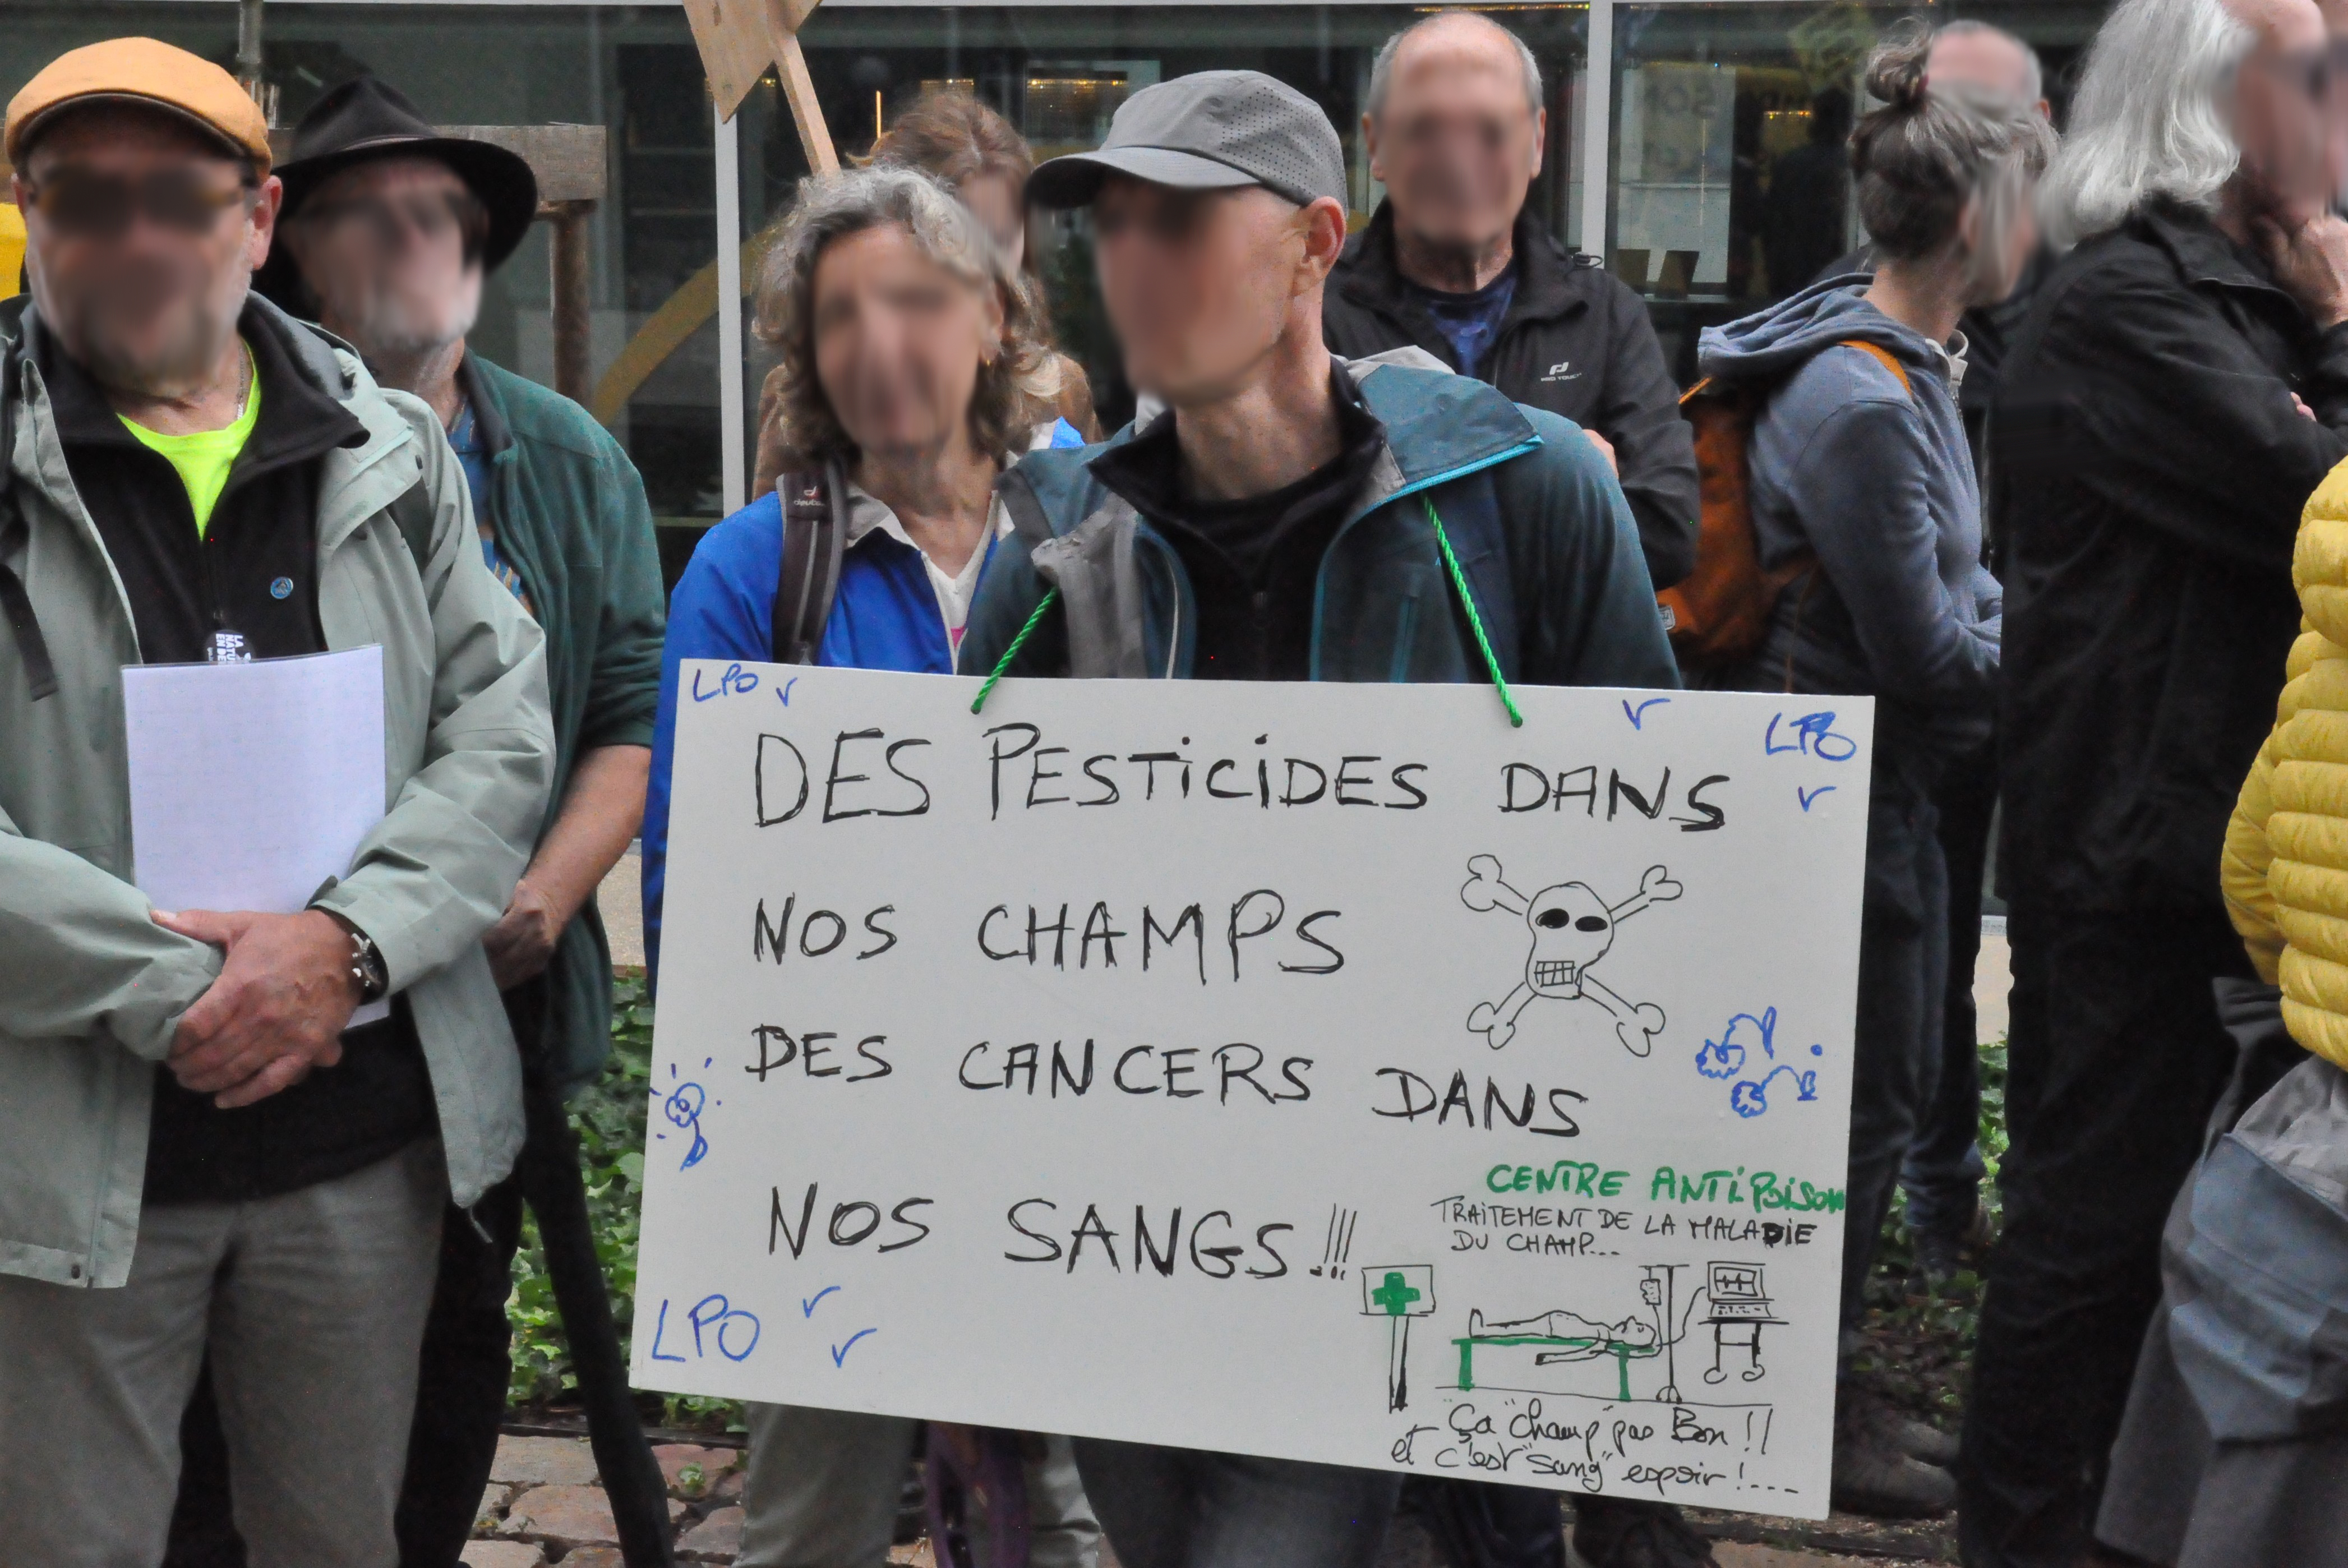 deuter
PRO TOUCH
LA
NATU
EN DE
LPO
LPO
DES PESTiCiDES DANS
NOS CHAMPS
DES CANCERS DANS
NOS SANGS !!!
CENTRE ANTiPOiSON
TRAiTEMENT DE LA MALADiE
DU CHAMP...
LPO
Ça "champ" pas Bon !!
et c'est "sang" espoir !....